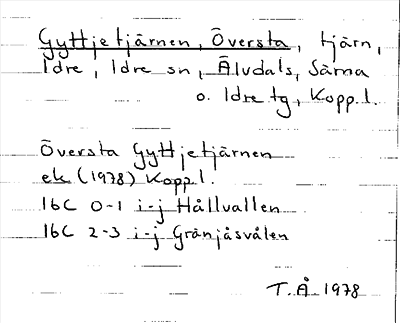 Gyttjetjärnen, Översta, tjärn,
Idre, Idre sn, Älvdals, Särna
o. Idre tg, Kopp.l.
Översta Gyttjetjärnen
ek (1978) Kopp.l.
16C 0-1 i-j Hållvallen
16C 2-3 i-j Gränjåsvålen
T.Å. 1978